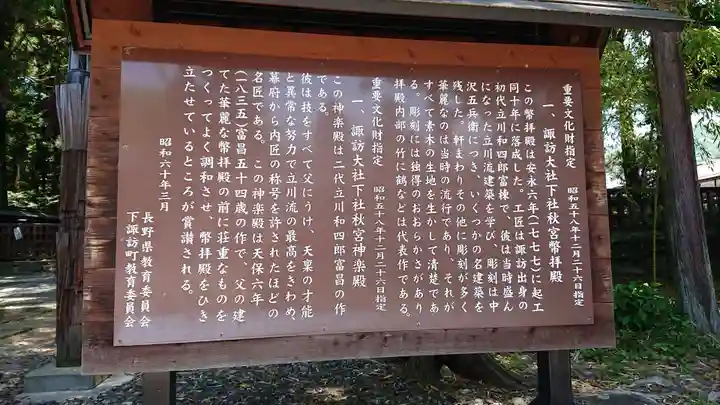 重要文化財指定 昭和五十八年十二月二十六日指定
一、諏訪大社下社秋宮幣拝殿
この幣拝殿は安永六年(一七七七)に起工
同十年に落成した。工匠は諏訪出身の
初代立川和四郎富棟で、彼は当時盛ん
になった立川流建築を学び、彫刻は中
沢五兵衛につき、いくつかの名建築を
残した。軒まわりその他に彫刻が多く
華麗なのは当時の流行であり、それが
すべて素木の生地を生かして清楚であ
る。彫刻には独得のおおらかさがあり
拝殿内部の竹に鶴などは代表作である。
重要文化財指定 昭和五十八年十二月二十六日指定
一、諏訪大社下社秋宮神楽殿
この神楽殿は二代立川和四郎富昌の作
である。
彼は技をすべて父にうけ、天稟の才能
と異常な努力で立川流の最高をきわめ、
幕府から内匠の称号を許されたほどの
名匠である。この神楽殿は天保六年
(一八三五)富昌五十四歳の作で、父の建
てた華麗な幣拝殿の前に荘重なものを
つくってよく調和させ、幣拝殿をひき
立たせているところが賞讃される。
昭和六十年三月
長野県教育委員会
下諏訪町教育委員会